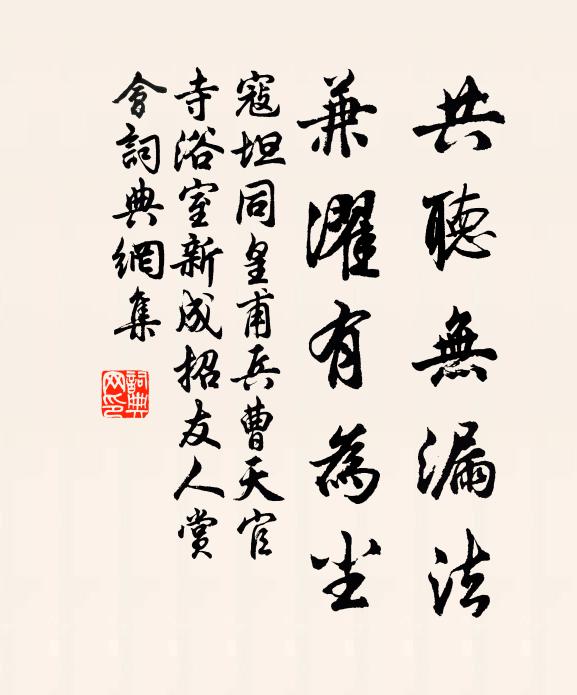 共聽無漏法
兼濯有為尘
寇坦同皇甫兵曹天官
寺浴室新成招友人賞
會詞典網集
詞典网印